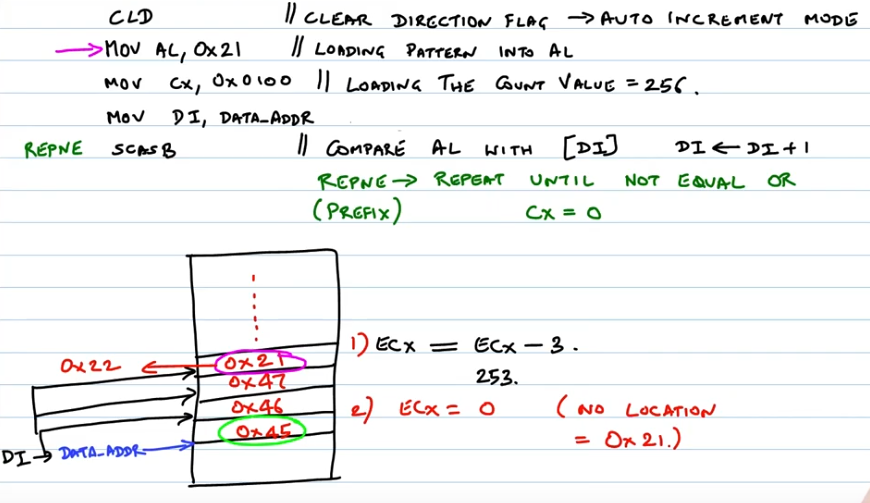 CLD // CLEAR DIRECTION FLAG → AUTO INCREMENT MODE
→ MOV AL, 0x21 // LOADING PATTERN INTO AL
MOV CX, 0x0100 // LOADING THE COUNT VALUE = 256.
MOV DI, DATA_ADDR
REPNE SCASB // COMPARE AL WITH [DI] DI ← DI + 1
REPNE → REPEAT UNTIL NOT EQUAL OR
(PREFIX) CX = 0
1) ECX = ECX - 3.
0x22 ← 0x21
0x47
253.
0x46
2) ECX = 0 (NO LOCATION
0x45
= 0x21.)
DI → DATA_ADDR →